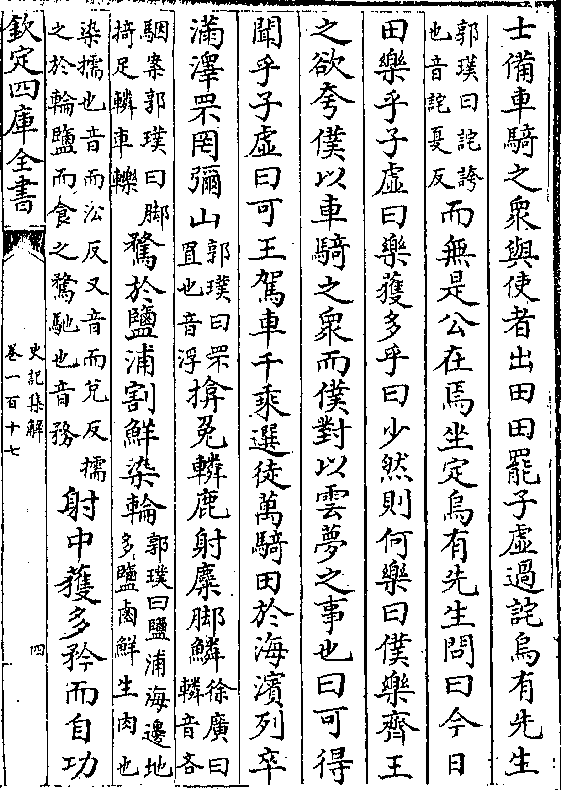 士備車騎之衆與使者出田田罷子虛過詫烏有先生
郭璞曰詫誇也音詫夏反而無是公在焉坐定烏有先生問曰今日
田樂乎子虛曰樂獲多乎曰少然則何樂曰僕樂齊王
之欲夸僕以車騎之衆而僕對以雲夢之事也曰可得
聞乎子虛曰可王駕車千乘選徒萬騎田於海濱列卒
滿澤罘罔彌山郭璞曰罘罝也音浮揜兔轔鹿射麋脚鱗徐廣曰轔音吝
駰案郭璞曰脚掎足轔車轢騖於鹽浦割鮮染輪郭璞曰鹽浦海邊地多鹽鹵鮮生肉也
染擩也音而沿反又音而兌反擩之於輪鹽而食之騖馳也音務射中獲多矜而自功
欽定四庫全書
史記集解
卷一百十七
四